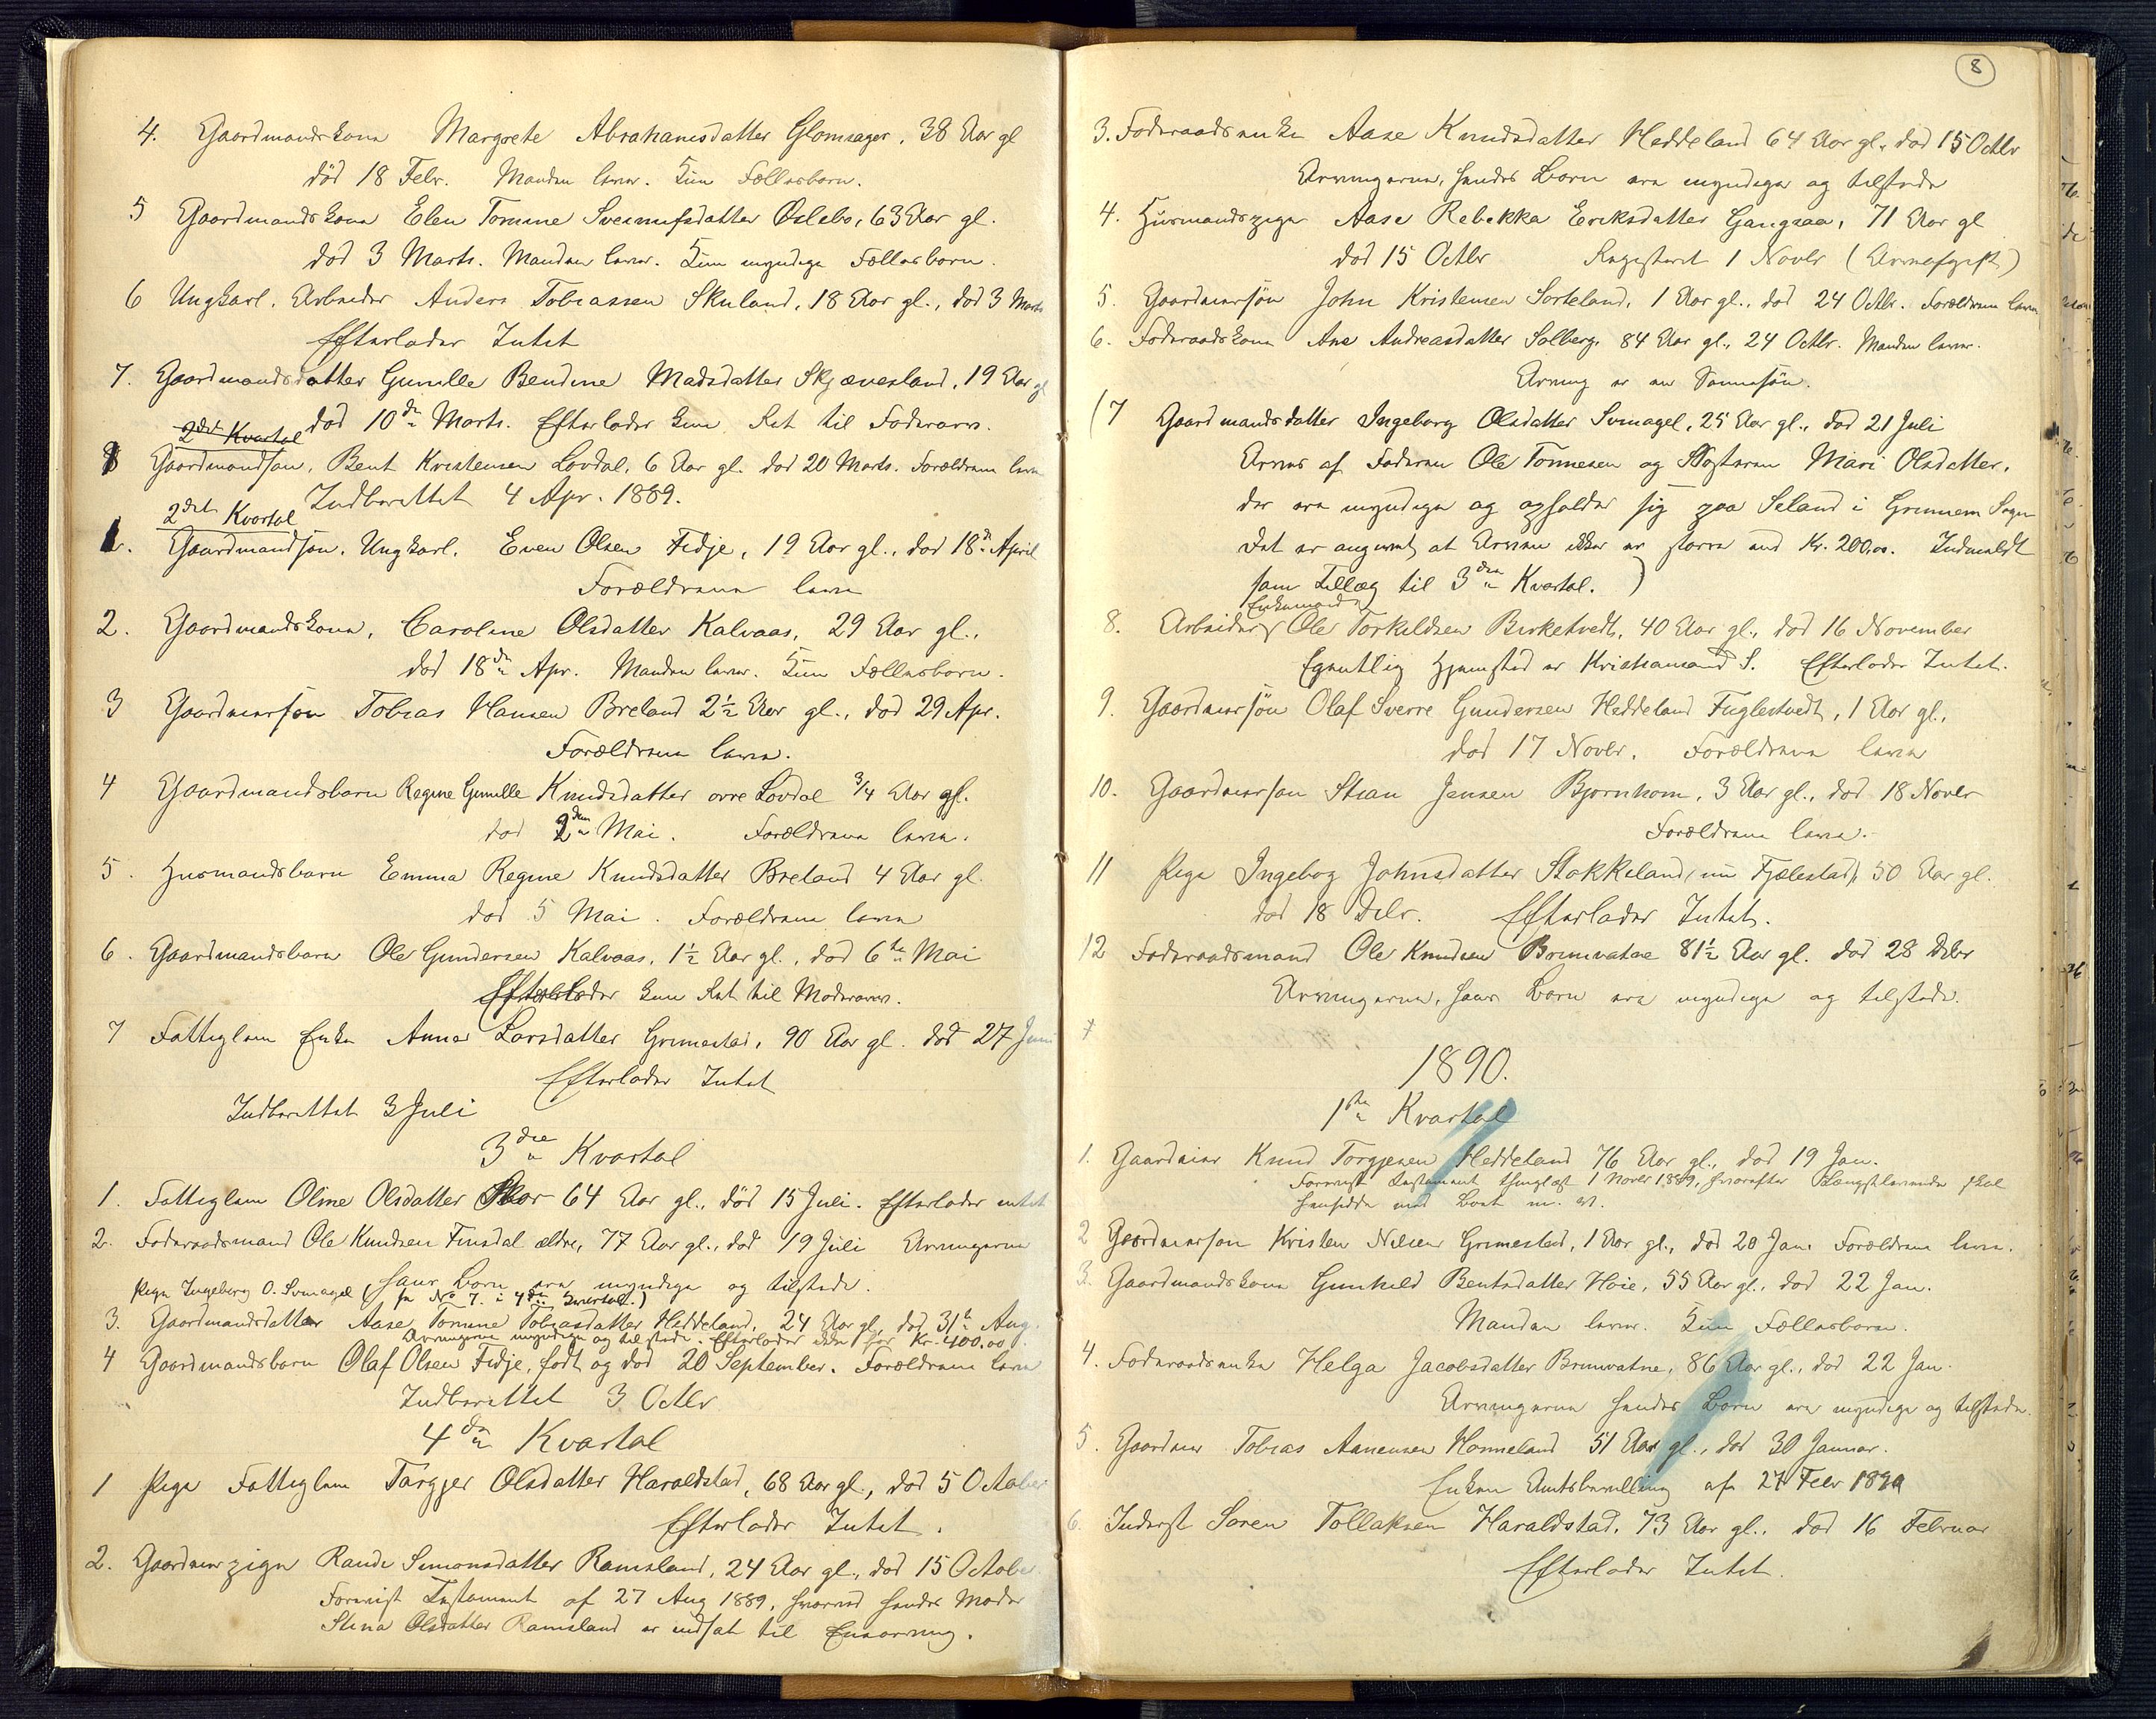 4. Gaardmandskone Margrete Abrahamsdatter Glomsager, 38 Aar gl
död 18 Febr. Manden lever. Kun Fællesbørn.
5 Gaardmandskone Elen Tomine Sveinufsdatter Øslebø, 63 Aar gl.
død 3 Marts. Manden lever. Kun myndige Fællesbørn.
6 Ungkarl. Arbeider Anders Tobiassen Skuland, 18 Aar gl., død 3 Marts
Efterlader Intet
7. Gaardmandsdatter Gunille Bendine Madsdatter Skjævesland, 19 Aar gl
død 10de Marts. Efterlader kun Ret til Faderarv.
2det Kvartal
8 Gaardmandsøn, Bent Kristensen Lovdal, 6 Aar gl. død 20 Marts. Forældrene leve
Indberettet 4 Apr. 1889.
2det Kvartal
1. Gaardmandsøn. Ungkarl. Even Olsen Fidje, 19 Aar gl., død 18de April
Forældrene leve
2. Gaardmandskone, Caroline Olsdatter Kalvaas, 29 Aar gl.,
død 18de Apr. Manden lever. Kun Fællesbørn.
3 Gaardeiersøn Tobias Hansen Breland 2½ Aar gl., død 29 Apr.
Forældrene leve.
4 Gaardmandsbarn Regine Gunille Knudsdatter øvre Lovdal ¾ Aar gl.
død 2den Mai. Forældrene leve.
5. Husmandsbarn Emma Regine Knudsdatter Breland 4 Aar gl.
død 5 Mai. Forældrene leve
6. Gaardmandsbarn Ole Gundersen Kalvaas, 1½ Aar gl., død 6te Mai
Efterlader kun Ret til Moderarv.
7 Fattiglem Enke Anne Larsdatter Grimestad, 90 Aar gl. død 27 Juni
Efterlader Intet
Indberettet 3 Juli
3die Kvartal
1. Fattiglem Oline Olsdatter Skar 64 Aar gl., död 15 Juli. Efterlader intet
2. Föderaadsmand Ole Knudsen Finsdal ældre, 77 Aar gl., død 19 Juli Arvingerne
hans Børn ere myndige og tilstede.
Pige Ingeborg O. Svinagel (se No 7. i 4de Kvartal.)
3. Gaardmandsdatter Aase Tomine Tobiasdatter Heddeland, 24 Aar gl., død 31te Aug.
Arvingerne myndige og tilstede. Efterlader ikke for Kr. 400,00.
4 Gaardmandsbarn Olaf Olsen Fidje, født og død 20 September. Forældrene leve
Indberettet 3 Octbr
4de Kvartal
1 Pige Fattiglem Targjer Olsdatter Haraldstad, 68 Aar gl., død 5 October
Efterlader Intet.
2. Gaardeierpige Randi Simonsdatter Ramsland, 24 Aar gl., død 15 October
Forevist Testament af 27 Aug 1889, hvorved hendes Moder
Stina Olsdatter Ramsland er indsat til Enearving.
8
3. Føderaadsenke Aase Knudsdatter Heddeland 64 Aar gl. død 15 Octbr
Arvingerne, hendes Børn ere myndige og tilstede
4. Husmandspige Aase Rebekka Eriksdatter Gangsaa, 71 Aar gl
død 15 Octbr Registeret 1 Novbr (Arveafgift)
5. Gaardeiersön John Kristensen Sorteland, 1 Aar gl., død 24 Octbr. Forældrene leve
6. Föderaadskone Ane Andreasdatter Solberg, 84 Aar gl., 24 Octbr. Manden lever.
Arving er en Sønnesøn.
(7 Gaardmandsdatter Ingeborg Olsdatter Svinagel, 25 Aar gl., død 21 Juli
Arves af Faderen Ole Tønnesen og Søsteren Mari Olsdatter,
der ere myndige og opholder sig paa Seland i Grinnem Sogn
Det er angivet at Arven ikke er større end Kr. 200,00. Indmeldt
som Tillæg til 3die Kvartal.)
Enkemand
8. Arbeider Ole Torkildsen Birketvedt, 40 Aar gl., død 16 November
Egentlig Hjemsted er Kristiansand S. Efterlader Intet.
9. Gaardeiersön Olaf Sverre Gundersen Heddeland Fuglestvedt, 1 Aar gl.,
død 17 Novbr. Forældrene leve
10. Gaardeiersøn Stian Jensen Bjørnhom, 3 Aar gl., død 18 Novbr
Forældrene leve.
11 Pige Ingebog Johnsdatter Stokkeland, (nu Fjølestad), 50 Aar gl.
død 18 Debr. Efterlader Intet.
12 Føderaadsmand Ole Knudsen Brunvatne 81½ Aar gl. død 28 Debr
Arvingerne, hans Børn ere myndige og tilstede.
1890.
1ste Kvartal
1. Gaardeier Knud Torgjesen Heddeland 76 Aar gl., død 19 Jan.
Forevist Testament thinglæst 1 Novbr 1889, hvorefter Længstlevende skal
hensidde med Boet m. v.
2 Gaardeiersøn Kristen Nilsen Grimestad, 1 Aar gl., död 20 Jan. Forældrene leve.
3. Gaardmandskone Gunhild Bentsdatter Høie, 55 Aar gl., død 22 Jan.
Manden lever. Kun Fællesbørn.
4. Føderaadsenke Helga Jacobsdatter Brunvatne, 86 Aar gl., død 22 Jan.
Arvingerne hendes Børn ere myndige og tilstede.
5. Gaardeier Tobias Aanensen Honneland 51 Aar gl., død 30 Januar.
Enken Amtsbevilling af 27 Febr 1890
6. Inderst Søren Tollaksen Haraldstad, 73 Aar gl., død 16 Februar
Efterlader Intet.